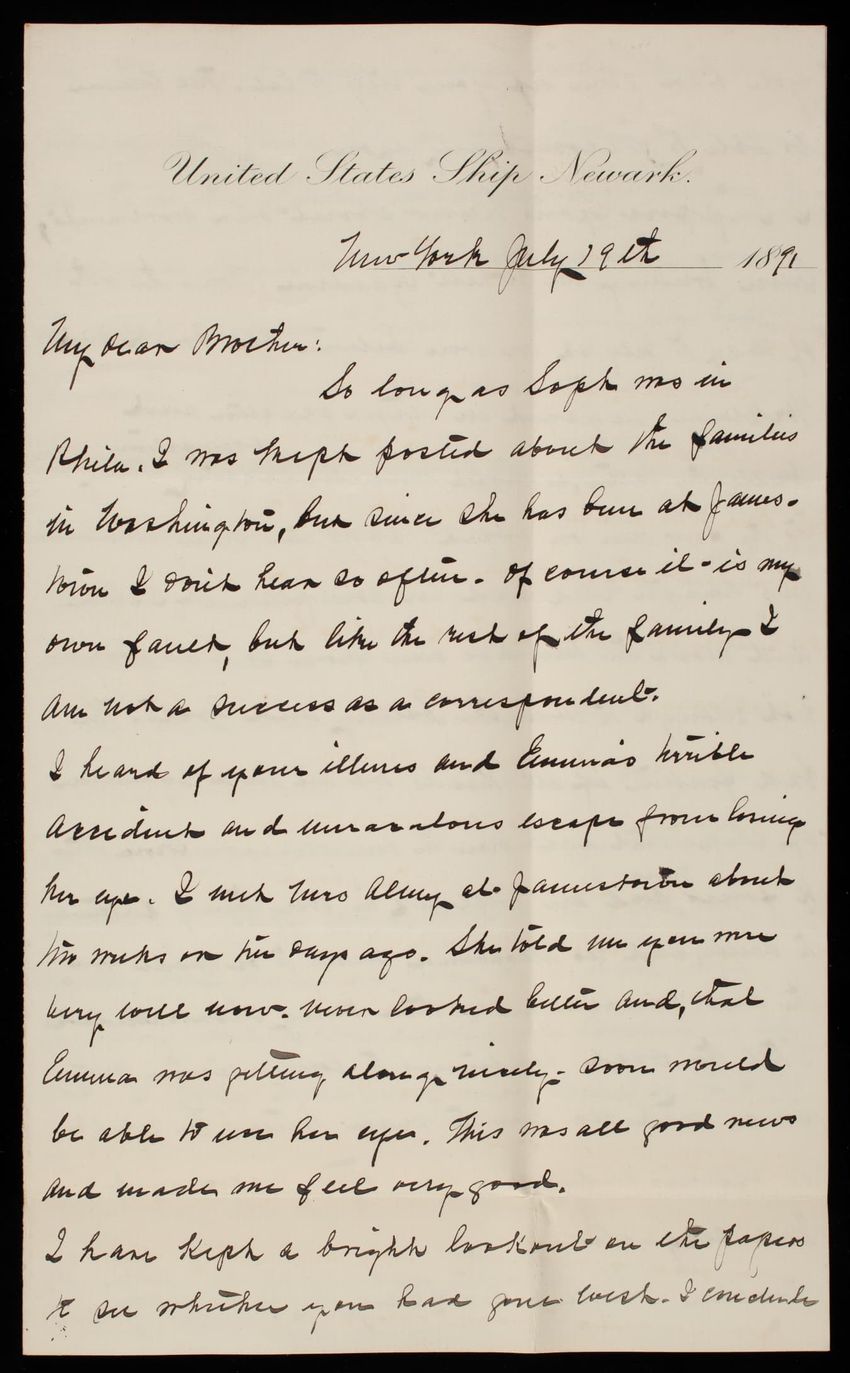 United States Ship Newark.
New York July 29th 1891
My dear Brother:
So long as Soph was in
Phila. I was kept posted about the families
in Washington, but since she has been at James-
town I don't hear so often. Of course it is my
own fault, but like the rest of the family I
am not a success as a correspondent.
I heard of your illness and Emma's terrible
accident and miraculous escape from losing
her eye. I met Mrs Almy at Jamestown about
two weeks or ten days ago. She told me you were
very well now. never looked better and, that
Emma was getting along nicely - soon would
be able to use her eyes. This was all good news
and made me feel very good.
I have kept a bright lookout on the papers
to see whether you had gone West. I conclude